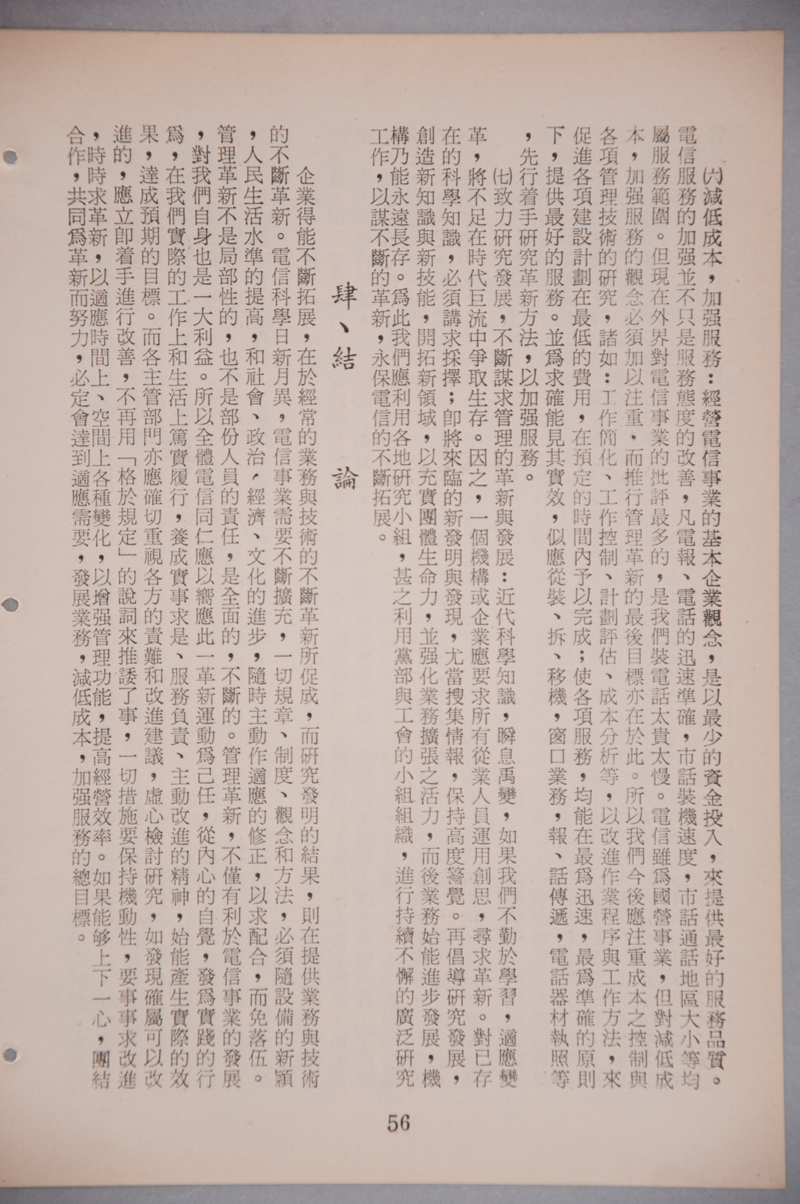 ㈥減低成本，加强服務：經營電信事業的基本企業觀念，是以最少的資金投入，來提供最好的服務品質。
電信服務的加强並不只是服務態度的改善，凡電報、電話的迅速準確，市話裝機速度，市話通話地區大小等均
屬服務範圍。但現在外界對電信事業的批評最多的，是我們裝電話太貴太慢。電信雖爲國營事業，但對減低成
本，加强服務的觀念必須加以注重，而推行管理革新的最後目標亦在於此。所以我們今後應注重成本之控制與
各項管理技術的研究，諸如：工作簡化、工作控制、計劃評估、成本分析等，以改進作業程序與工作方法，來
促進各項建設計劃在最低的費用，在預定的時間內予以完成；使各項服務，均能在最爲迅速，最爲準確的原則
下，提供最好的服務。並爲求確能見其實效，似應從裝、拆、移機，窗口業務，報、話傳遞，電話器材執照等
，先行着手研究革新方法，以加强服務。
㈦致力研究發展，不斷謀求管理的革新與發展：近代科學知識，瞬息禹變，如果我們不勤於學習，適應變
革，將不足在時代巨流中爭取生存。因之，一個機構或企業應要求所有從業人員運用創思，尋求革新。對已存
在的科學知識，必須講求採擇；卽將來臨的新發明與發現，尤當搜集情報，保持高度警覺。再倡導研究發展，
創造新知識與新技能，開拓新領域，以充實團體生命力，並强化業務擴張之活力，而後業務始能進步發展，機
構乃能永遠長存。爲此我們應利用各地研究小組，甚之利用黨部與工會的小組組織，進行持續不懈的廣泛研究
工作，以謀不斷的革新，永保電信的不斷拓展。
肆、結　論
企業得能不斷拓展，在於經常的業務與技術的不斷革新所促成，而研究發明的結果，則在提供業務與技術
的不斷革新。電信科學日新月異，電信事業需要不斷擴充，一切規章、制度、觀念和方法，必須隨設備的新穎
，人民生活水準的提高，和社會、政治，經濟、文化的進步，隨時主動作適應的修正，以求配合，而免落伍。
管理革新不是局部性的，也不是部份人員的責任，是全面的，不斷的。管理革新，不僅有利於電信事業的發展
，對我們自身也是一大利益。所以全體電信同仁應以嚮應此一革新運動爲己任，從內心的自覺，發爲實踐的行
爲，在我們實際的工作上和生活上篤實履行，養成實事求是、服務負責、主動改進的精神，始能產生實際的效
果，達成預期的目標。而各主管部門亦應確切重視各方的責難和改進建議，虛心檢討研究，如發現確屬可以改
進的，應立卽着手進行改善，不再用「格於規定」的說詞來推諉了事，一切措施要保持機動性，要事事求改進
，時時求革新，以適應時間上、空間上各種變化，以增强管理功能，提高經營效率。如果能够上下一心，團結
合作，共同爲革新而努力，必定會達到適應需要，發展業務，減低成本，加强服務的總目標。
56